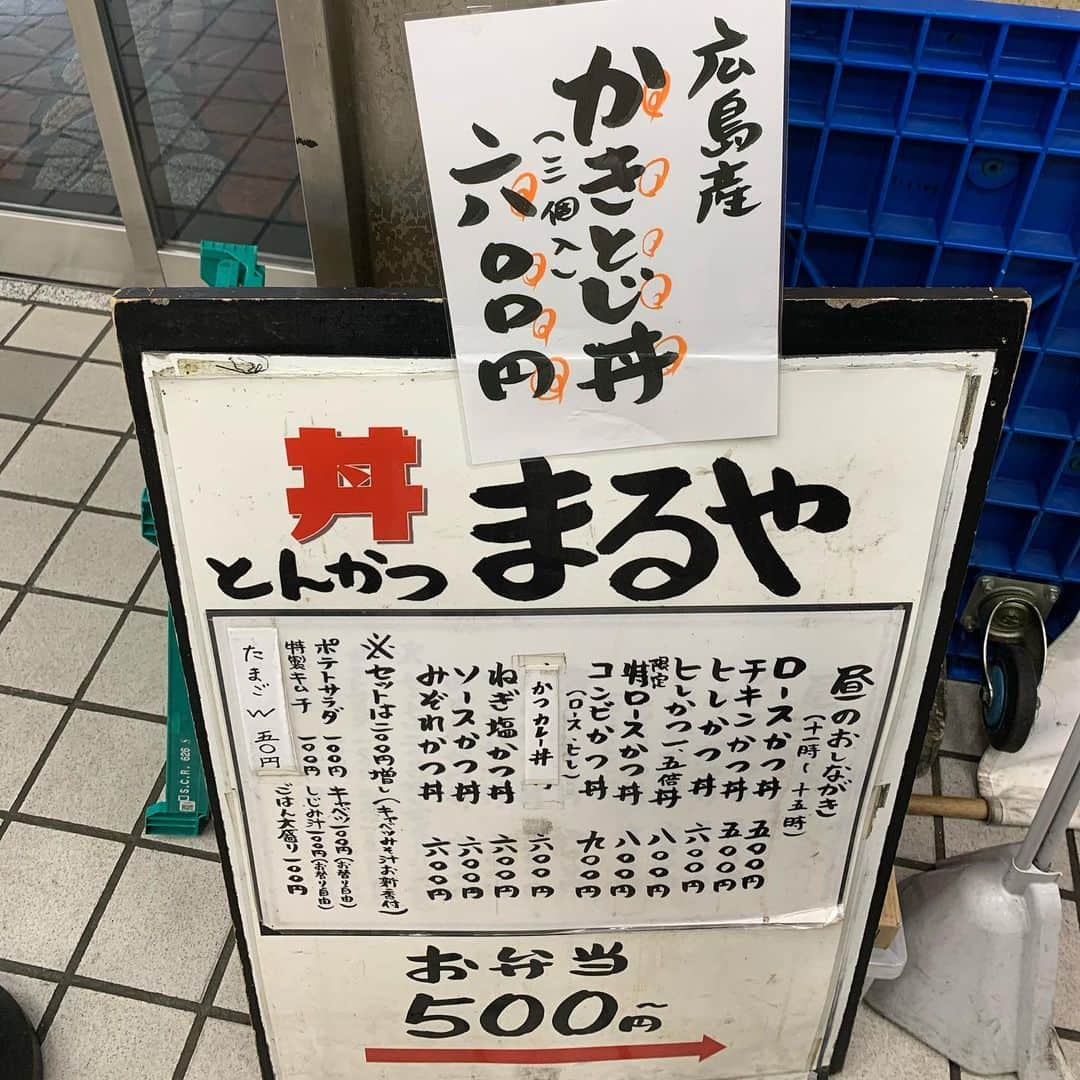 広島産
かきとじ丼
(三個入)
六〇〇円
丼
とんかつ
まるや
昼のおしながき
(十一時〜十五時)
ロースかつ丼 五〇〇円
チキンかつ丼 五〇〇円
ヒレかつ丼 六〇〇円
ヒレかつ一、五倍丼 八〇〇円
限定
特ロースかつ丼 八〇〇円
コンビかつ丼 九〇〇円
(ロース・ヒレ)
かつカレー丼 六〇〇円
ねぎ塩かつ丼 六〇〇円
ソースかつ丼 六〇〇円
みぞれかつ丼 六〇〇円
※セットは二〇〇円増し(キャベツみそ汁お新香付)
ポテトサラダ 一〇〇円 キャベツ一〇〇円(お替り自由)
特製キムチ 一〇〇円 しじみ汁一〇〇円(お替り自由)
ごはん大盛り一〇〇円
たまごW 五〇円
お弁当
500円〜
S.C.R. 626